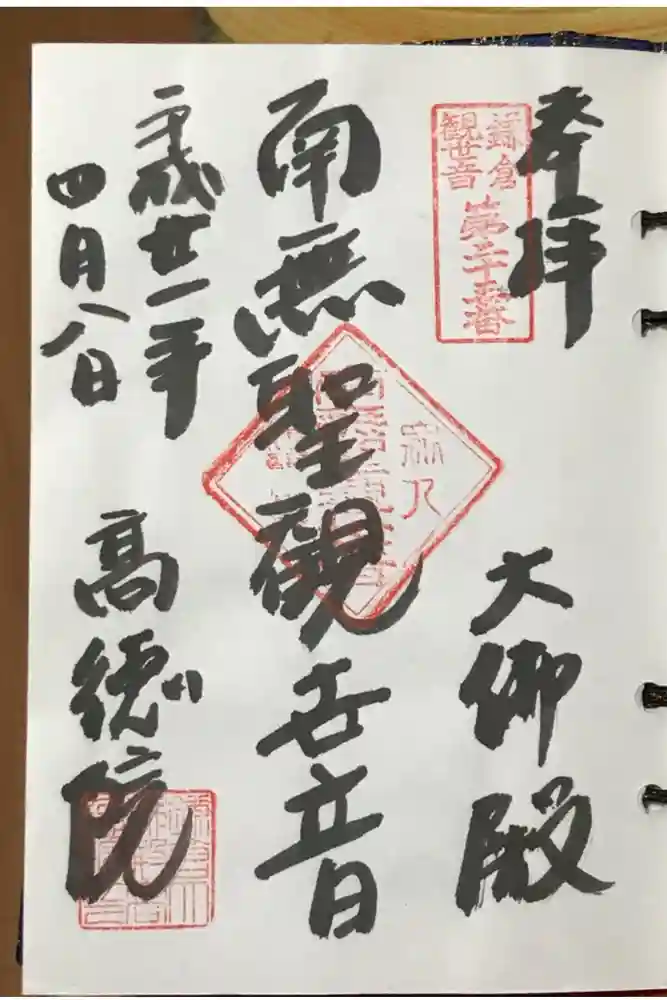 奉拝
大御殿
鎌倉
観世音
第二十三番
南無聖観世音
平成廿一年
四月八日
高徳院